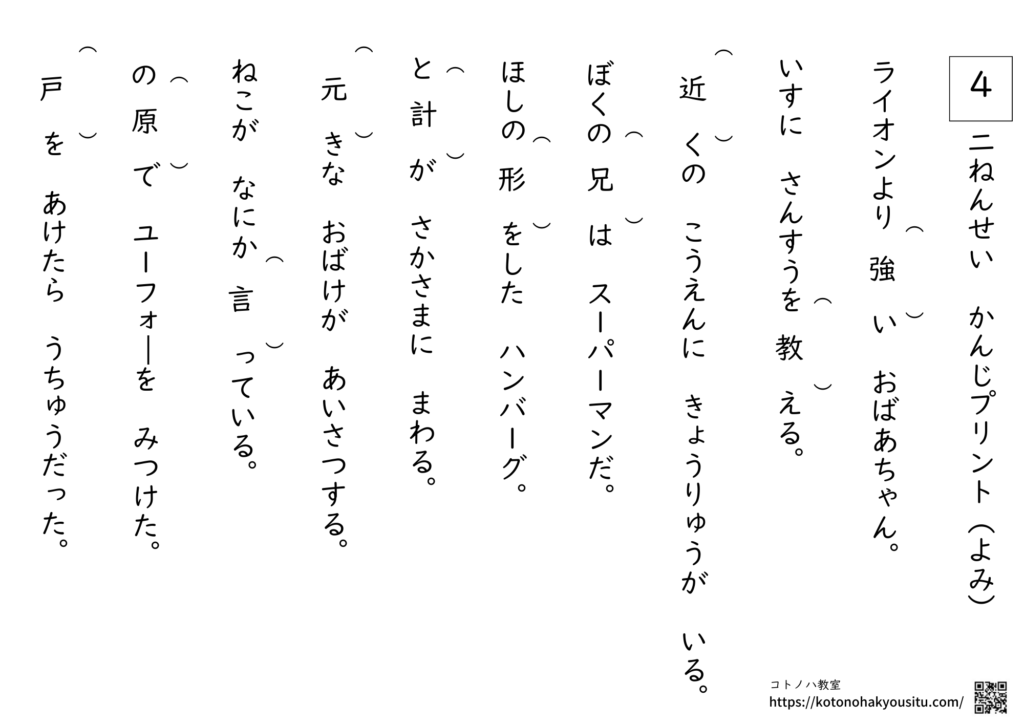 4 二ねんせい かんじプリント(よみ)
ライオンより 強( )い おばあちゃん。
いすに さんすうを 教( )える。
近( )くの こうえんに きょうりゅうが いる。
ぼくの 兄( )は スーパーマンだ。
ほしの 形( )をした ハンバーグ。
と計( )が さかさまに まわる。
元( )きな おばけが あいさつする。
ねこが なにか 言( )っている。
の原( )で ユーフォーを みつけた。
戸( )を あけたら うちゅうだった。
コトノハ教室
https://kotonohakyousitu.com/